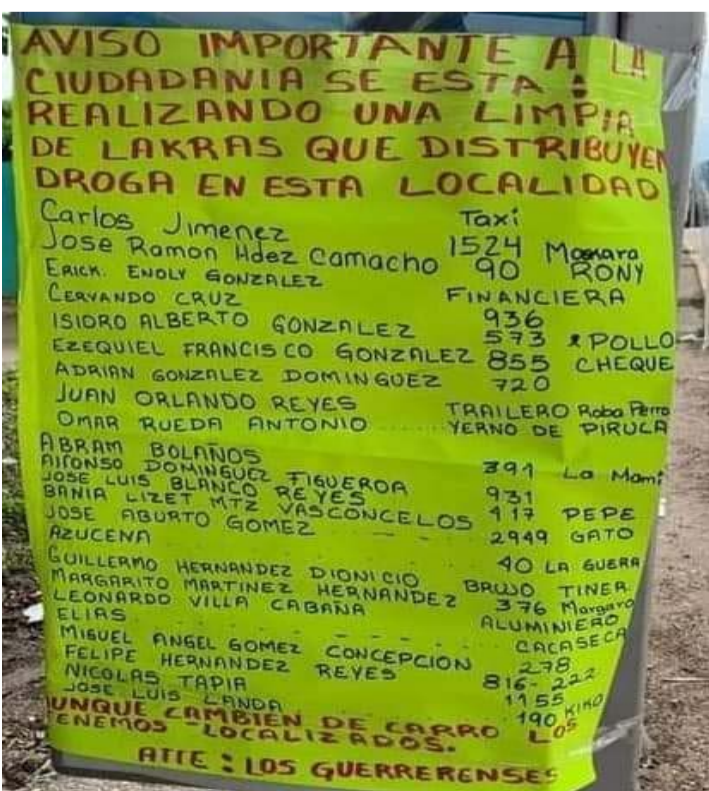 AVISO IMPORTANTE A LA
CIUDADANIA SE ESTA :
REALIZANDO UNA LIMPIA
DE LAKRAS QUE DISTRIBUYEN
DROGA EN ESTA LOCALIDAD
Carlos Jimenez Taxi
Jose Ramon Hdez Camacho 1524 Maskara
ERICK. ENOLY GONZALEZ 90 RONY
CERVANDO CRUZ FINANCIERA
ISIDRO ALBERTO GONZALEZ 936
EZEQUIEL FRANCISCO GONZALEZ 573 POLLO
ADRIAN GONZALEZ DOMINGUEZ 855 CHEQUE
JUAN ORLANDO REYES 720
OMAR RUEDA ANTONIO TRAILERO Roba Perro
YERNO DE PIRUCA
ABRAM BOLAÑOS
AlFONSO DOMINGUEZ FIGUEROA 391 La Mami
JOSE LUIS BLANCO REYES 931
BANIA LIZET MTZ VASCONCELOS 417 PEPE
JOSE ABURTO GOMEZ 2949 GATO
AZUCENA
GUILLERMO HERNANDEZ DIONICIO 40 LA GUERA
MARGARITO MARTINEZ HERNANDEZ BRUJO TINER
LEONARDO VILLA CABAÑA 376 Margaro
ELIAS ALUMINIERO
MIGUEL ANGEL GOMEZ CONCEPCION CACASECA
FELIPE HERNANDEZ REYES 278
NICOLAS TAPIA 816-222
JOSE LUIS LANDA 1155
190 KIKO
AUNQUE CAMBIEN DE CARRO LOS
TENEMOS LOCALIZADOS.
ATTE : LOS GUERRERENSES